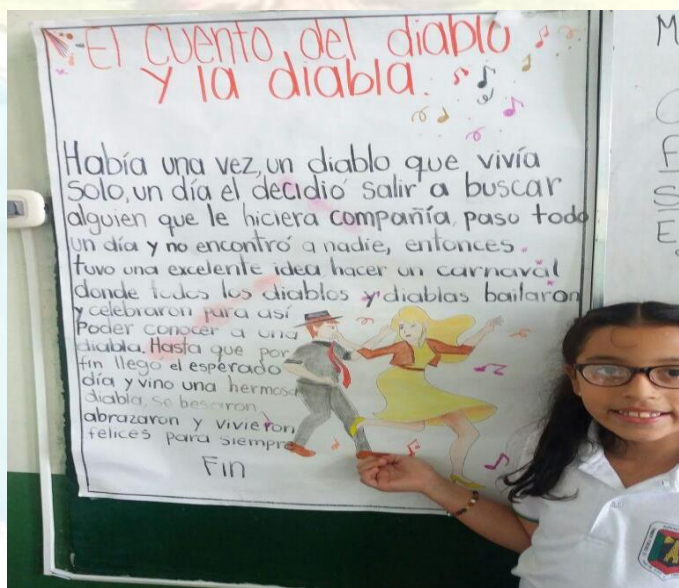 El cuento del diablo
y la diabla.
Había una vez, un diablo que vivía
solo, un día el decidió salir a buscar
alguien que le hiciera compañía, paso todo
un día y no encontró a nadie, entonces
tuvo una excelente idea hacer un carnaval
donde todos los diablos y diablas bailaron
y celebraron para así
Poder conocer a una
diabla. Hasta que por
fin llego el esperado
día y vino una hermosa
diabla, se besaron,
abrazaron y vivieron
felices para siempre
Fin
M
F
S
E